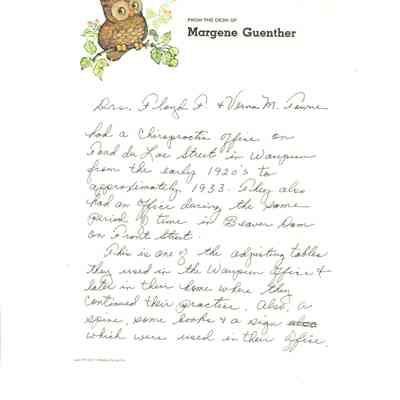 FROM THE DESK OF
Margene Guenther
Drs. Floyd F. & Verna M. Towne
had a Chiropractic Office on
Fond du Lac Street in Waupun
from the early 1920's to
approximately 1933. They also
had an office during the same
period of time in Beaver Dam
on Front Street.
This is one of the adjusting tables
they used in the Waupun Office &
later in their home where they
continued their practice. Also, a
spine, some books & a sign
which were used in their office.